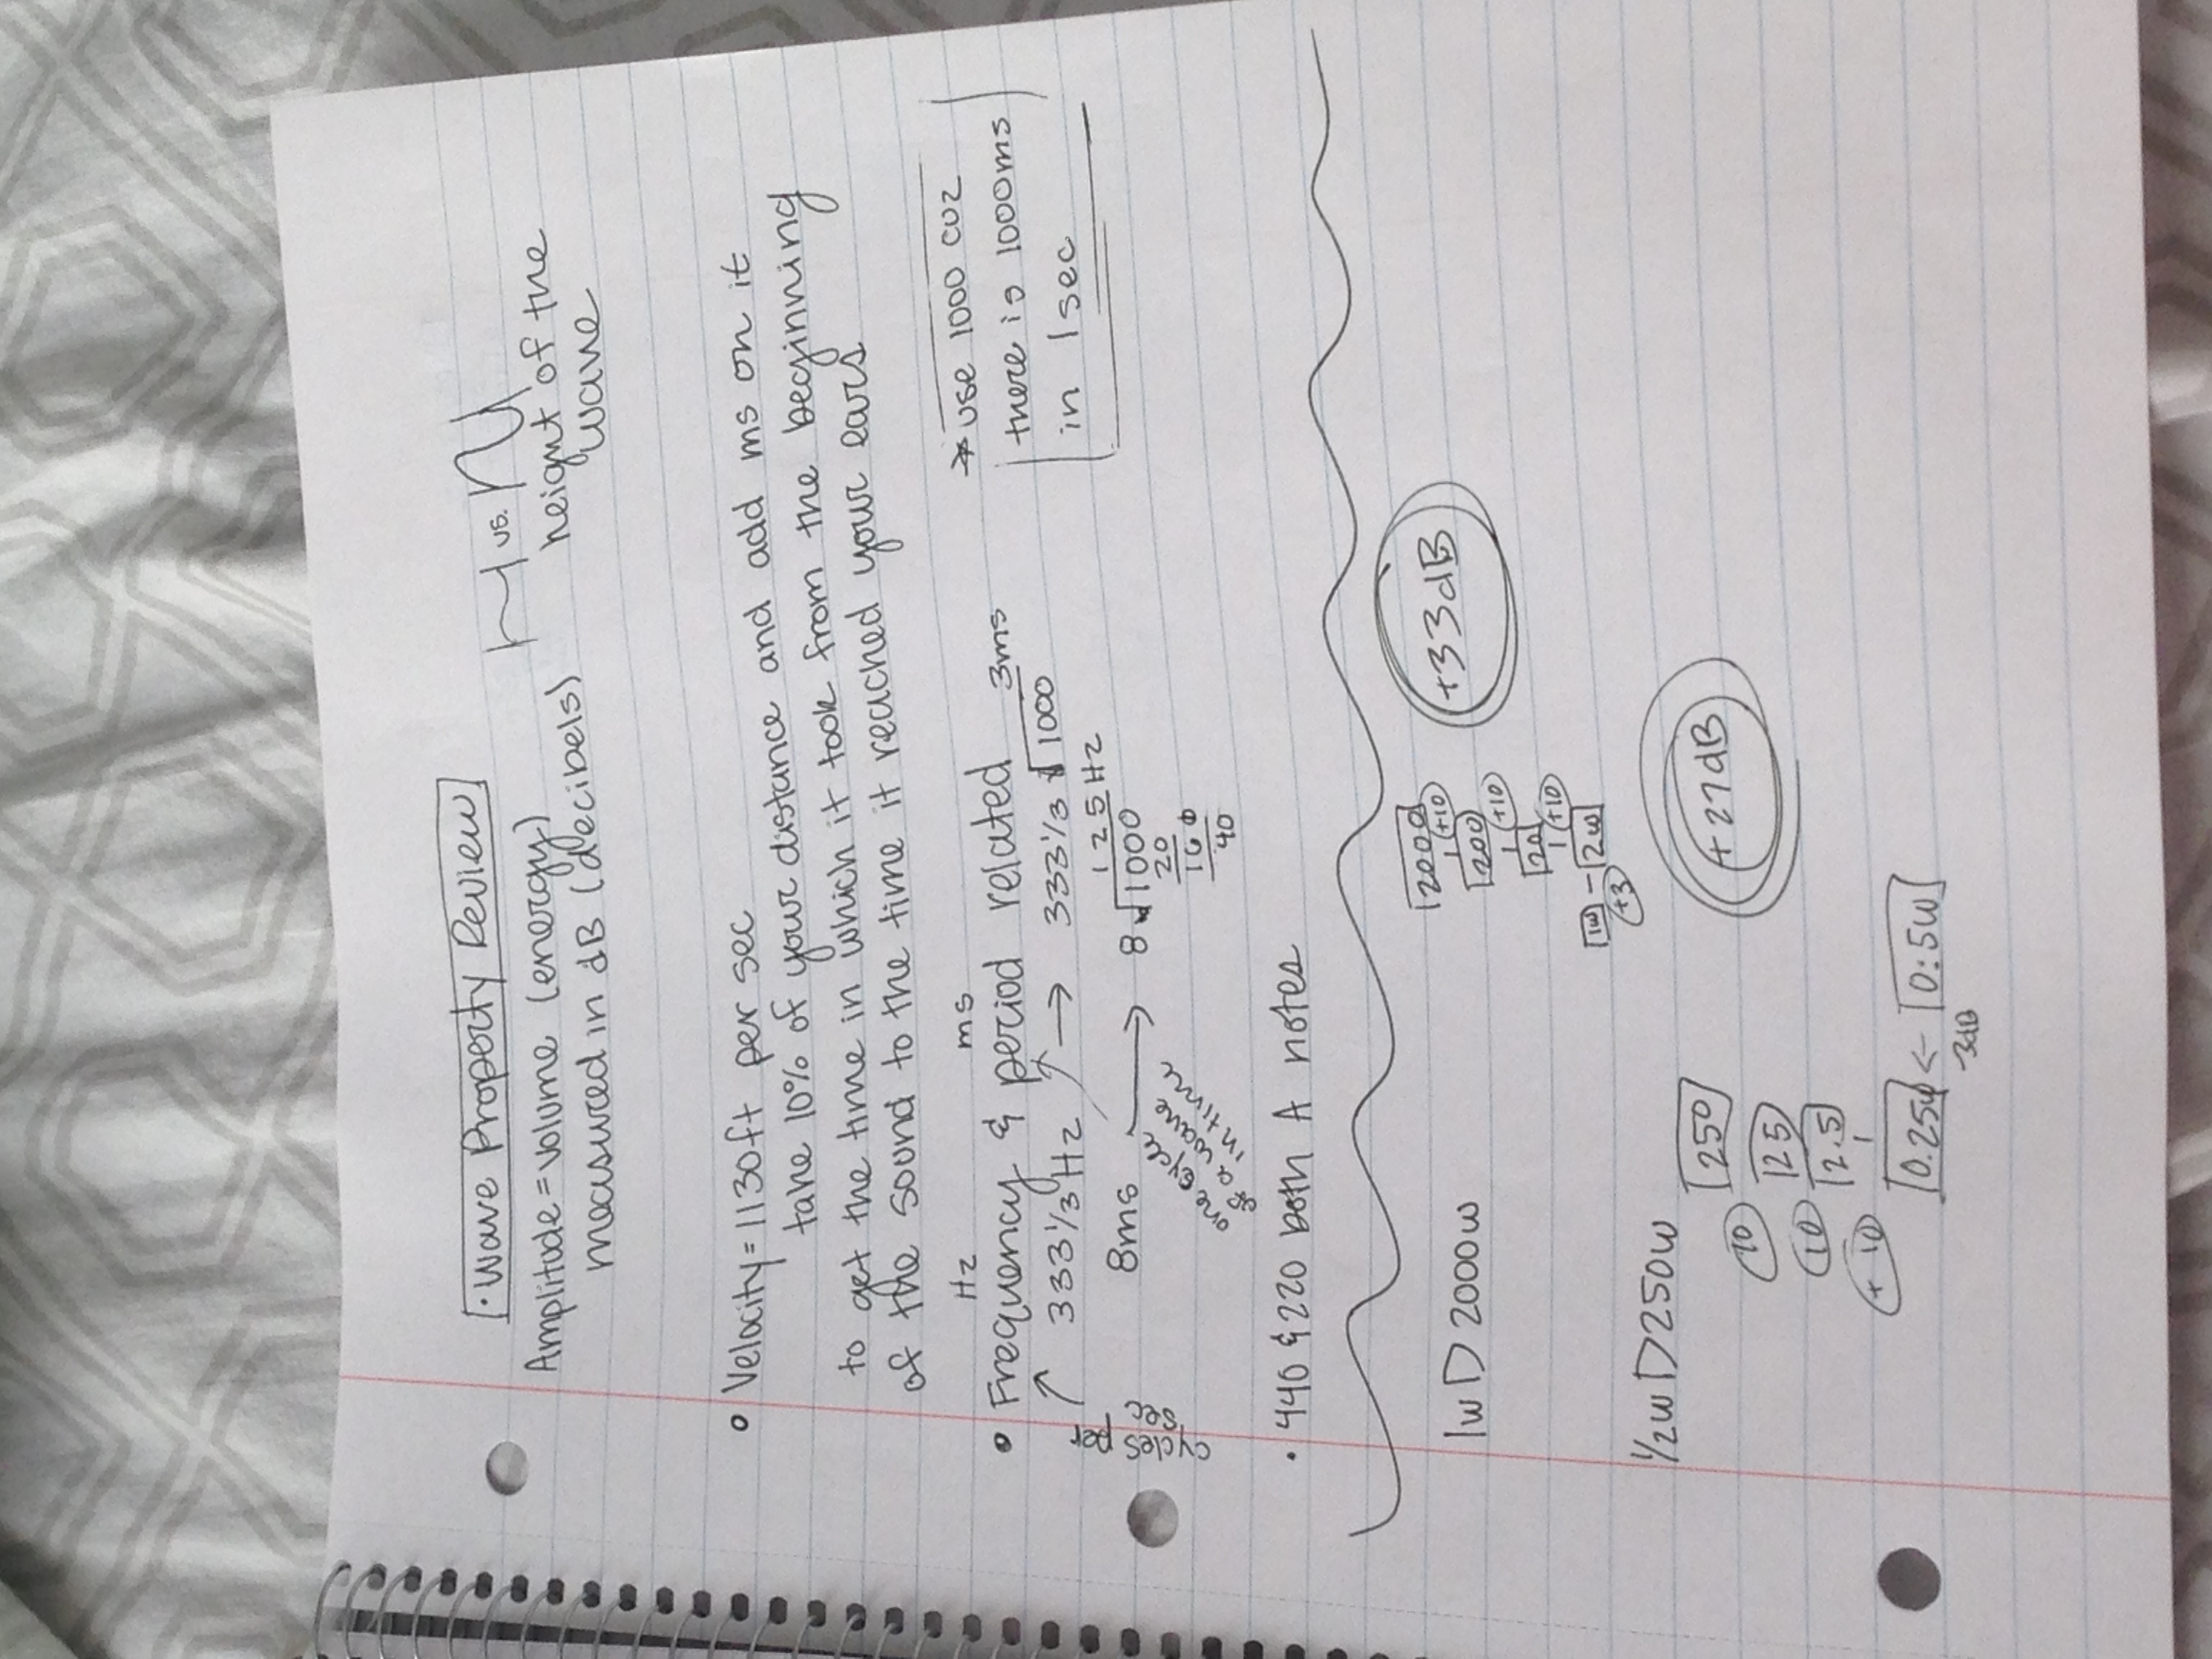 · Wave Property Review
Amplitude = volume (energy)
measured in dB (decibels)
vs.
height of the
wave
Velocity = 1130ft per sec
take 10% of your distance and add ms on it
to get the time in which it took from the beginning
of the sound to the time it reached your ears
Hz ms
Frequency & period related
cycles per
sec
333⅓ Hz → 3ms
333⅓ √1000
8ms → 125Hz
8 √1000
20
160
40
one cycle
of a wave
in time
* use 1000 cuz
there is 1000ms
in 1sec
· 440 & 220 both A notes
1w D 2000w
2000
+10
200
+10
20
+10
1w – 2w
+3
+33dB
½w D 250w
250
10
25
10
2.5
+ 10
0.25w ← 0.5w
-3dB
+27dB